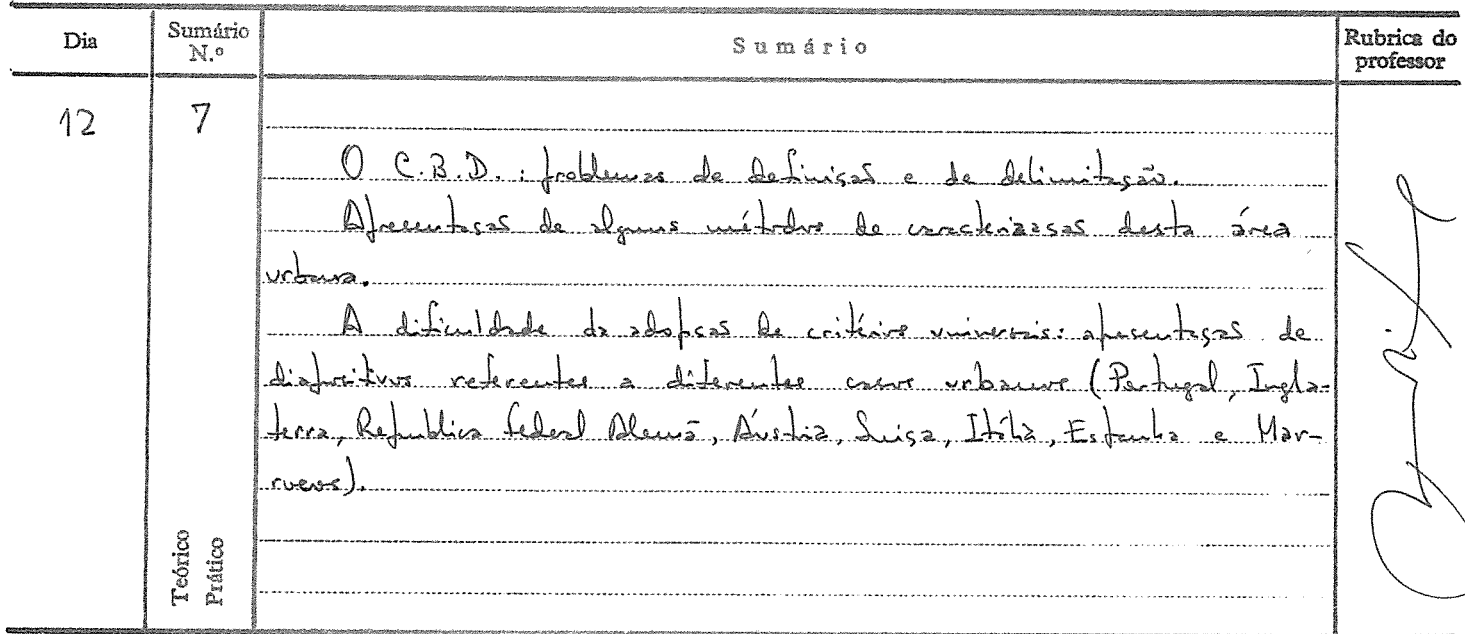 Dia
Sumário N.º
Sumário
Rubrica do professor
12
7
O C.B.D.: problemas de definição e de delimitação.
Apresentação de alguns métodos de caracterização desta área
urbana.
A dificuldade da adopção de critérios universais: apresentação de
diapositivos referentes a diferentes casos urbanos (Portugal, Ingla-
terra, Republica Federal Alemã, Áustria, Suiça, Itália, Espanha e Mar-
rocos).
Teórico
Prático